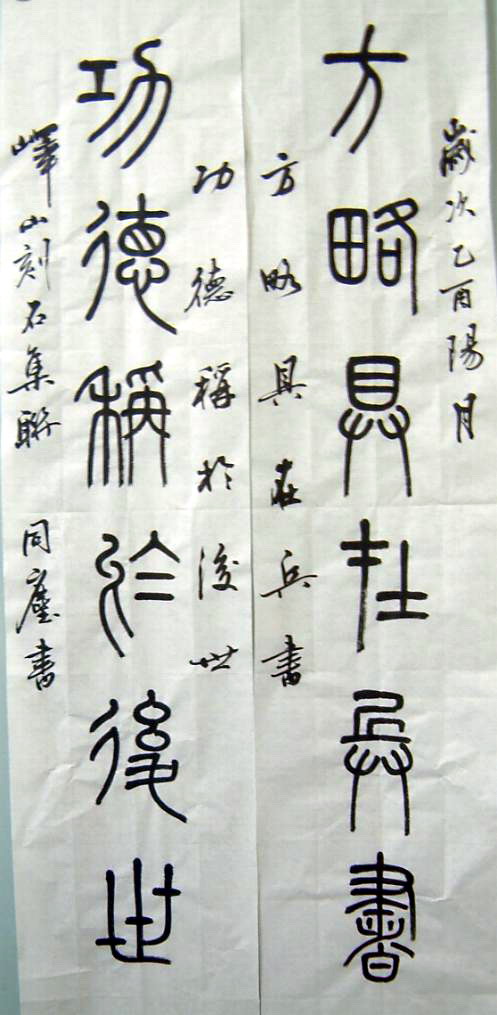 歲次乙酉陽月
方略具在兵書
方略具在兵書
功德稱於後世
功德稱於後世
嶧山刻石集聯 同塵書